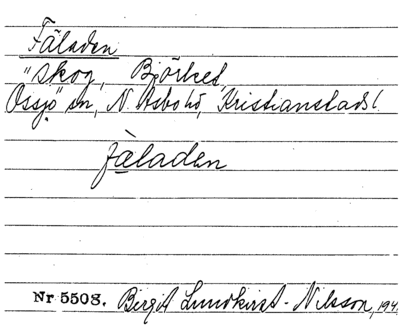 Fäladen
"Skog, Björket,
Össjö sn, N. Åsbo hd, Kristianstads l.
fàladen
Nr 5508. Birgit Lundkvist-Nilsson, 194